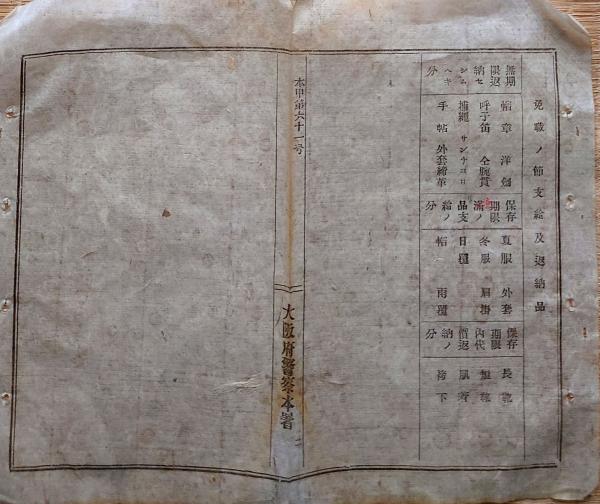 免職ノ節支給及返納品
無期限返納セシムヘキ分
帽章 洋劍
呼子笛 仝腕貫
捕縄 サンナヨコ
手帖 外套締革
保存期限滿ノ品支給ノ分
夏服 外套
冬服 肩掛
日覆
帽 雨覆
保存期限内代價返納ノ分
長靴
短靴
風呂
袴下
本甲第六十一号
大阪府警察本署